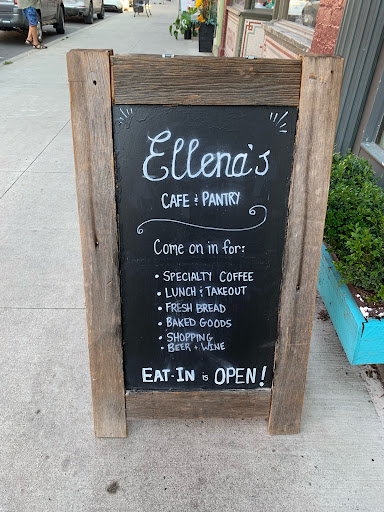 Ellena's
CAFE & PANTRY
Come on in for:
• SPECIALTY COFFEE
• LUNCH & TAKEOUT
• FRESH BREAD
• BAKED GOODS
• SHOPPING
• BEER + WINE
EAT-IN is OPEN!